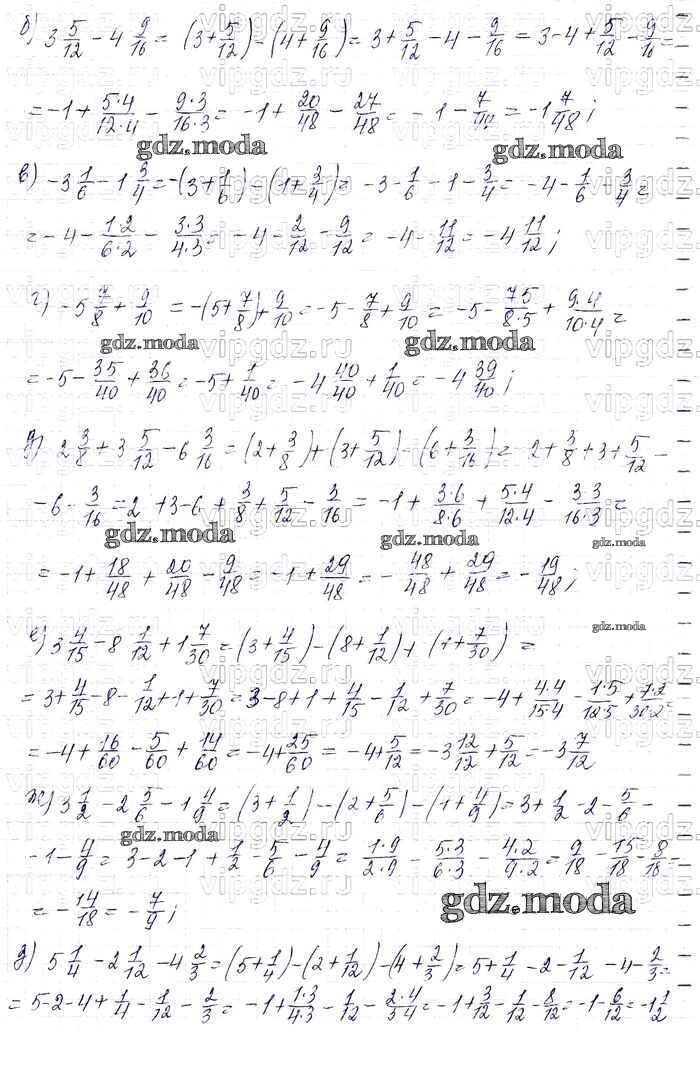 б) 3 5/12 - 4 9/16 = (3 + 5/12) - (4 + 9/16) = 3 + 5/12 - 4 - 9/16 = 3 - 4 + 5/12 - 9/16 =
= -1 + 5·4/12·4 - 9·3/16·3 = -1 + 20/48 - 27/48 = -1 - 7/48 = -1 7/48;
gdz.moda gdz.moda
в) -3 1/6 - 1 3/4 = -(3 + 1/6) - (1 + 3/4) = -3 - 1/6 - 1 - 3/4 = -4 - 1/6 - 3/4 =
= -4 - 1·2/6·2 - 3·3/4·3 = -4 - 2/12 - 9/12 = -4 - 11/12 = -4 11/12;
г) -5 7/8 + 9/10 = -(5 + 7/8) + 9/10 = -5 - 7/8 + 9/10 = -5 - 75/8·5 + 9·4/10·4 =
gdz.moda gdz.moda
= -5 - 35/40 + 36/40 = -5 + 1/40 = -4 40/40 + 1/40 = -4 39/40;
д) 2 3/8 + 3 5/12 - 6 3/16 = (2 + 3/8) + (3 + 5/12) - (6 + 3/16) = 2 + 3/8 + 3 + 5/12 -
- 6 - 3/16 = 2 + 3 - 6 + 3/8 + 5/12 - 3/16 = -1 + 3·6/8·6 + 5·4/12·4 - 3·3/16·3 =
gdz.moda gdz.moda gdz.moda
= -1 + 18/48 + 20/48 - 9/48 = -1 + 29/48 = -48/48 + 29/48 = -19/48;
gdz.moda
е) 3 4/15 - 8 1/12 + 1 7/30 = (3 + 4/15) - (8 + 1/12) + (1 + 7/30) =
= 3 + 4/15 - 8 - 1/12 + 1 + 7/30 = 3 - 8 + 1 + 4/15 - 1/12 + 7/30 = -4 + 4·4/15·4 - 1·5/12·5 + 7·2/30·2 =
= -4 + 16/60 - 5/60 + 14/60 = -4 + 25/60 = -4 + 5/12 = -3 12/12 + 5/12 = -3 7/12
ж) 3 1/2 - 2 5/6 - 1 4/9 = (3 + 1/2) - (2 + 5/6) - (1 + 4/9) = 3 + 1/2 - 2 - 5/6 -
gdz.moda
- 1 - 4/9 = 3 - 2 - 1 + 1/2 - 5/6 - 4/9 = 1·9/2·9 - 5·3/6·3 - 4·2/9·2 = 9/18 - 15/18 - 8/18 =
= -14/18 = -7/9;
gdz.moda
д) 5 1/4 - 2 1/12 - 4 2/3 = (5 + 1/4) - (2 + 1/12) - (4 + 2/3) = 5 + 1/4 - 2 - 1/12 - 4 - 2/3 =
= 5 - 2 - 4 + 1/4 - 1/12 - 2/3 = -1 + 1·3/4·3 - 1/12 - 2·4/3·4 = -1 + 3/12 - 1/12 - 8/12 = -1 - 6/12 = -1 1/2